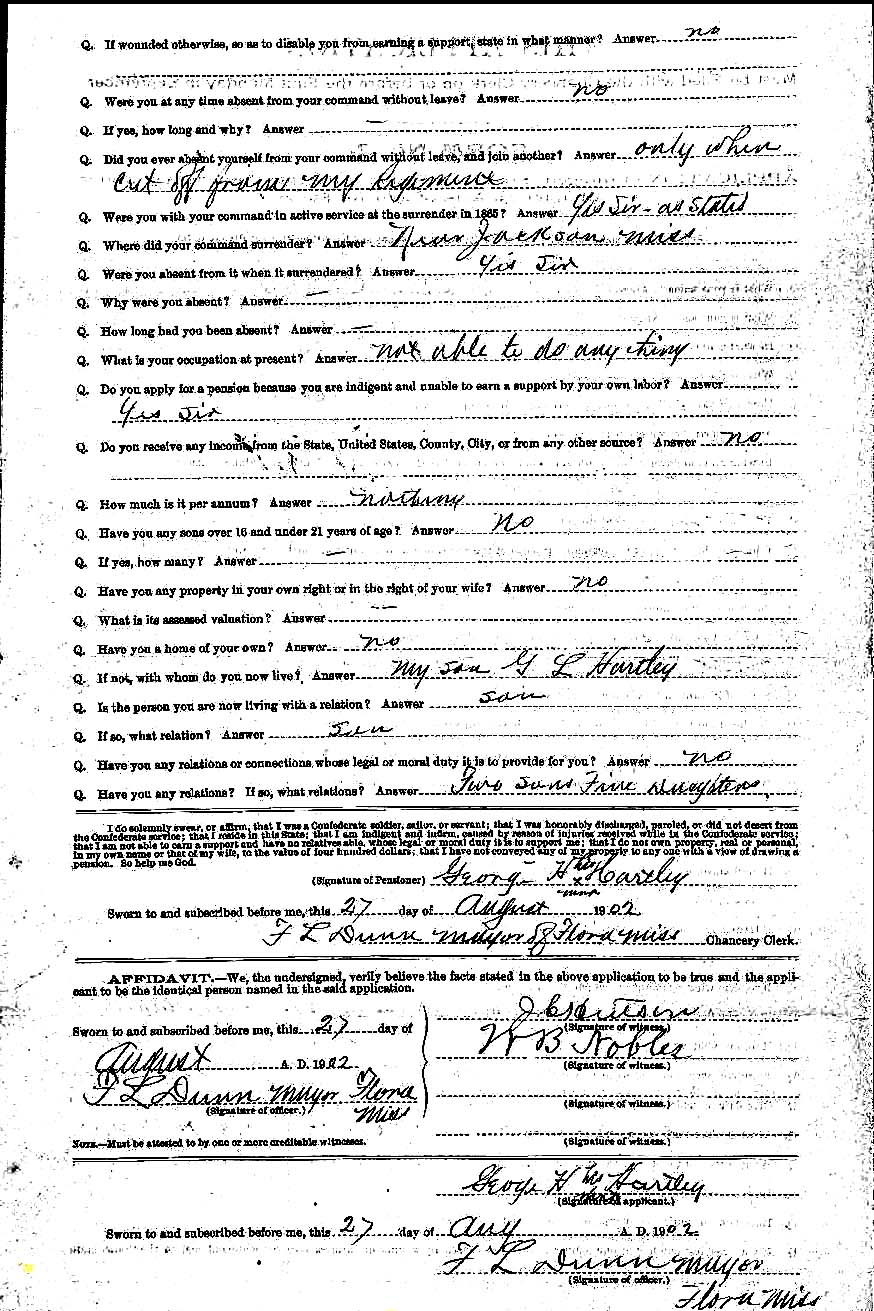 Q. If wounded otherwise, so as to disable you from earning a support, state in what manner? Answer no
Q. Were you at any time absent from your command without leave? Answer no
Q. If yes, how long and why? Answer —
Q. Did you ever absent yourself from your command without leave, and join another? Answer only when
cut off from my
Q. Were you with your command in active service at the surrender in 1865? Answer Yes Sir - as Stated
Q. Where did your command surrender? Answer Near Jackson Miss
Q. Were you absent from it when it surrendered? Answer Yis Sir
Q. Why were you absent? Answer —
Q. How long had you been absent? Answer —
Q. What is your occupation at present? Answer not able to do any thing
Q. Do you apply for a pension because you are indigent and unable to earn a support by your own labor? Answer
Yis Sir
Q. Do you receive any income from the State, United States, County, City, or from any other source? Answer no
Q. How much is it per annum? Answer nothing
Q. Have you any sons over 16 and under 21 years of age? Answer No
Q. If yes, how many? Answer —
Q. Have you any property in your own right or in the right of your wife? Answer no
Q. What is its assessed valuation? Answer —
Q. Have you a home of your own? Answer no
Q. If not, with whom do you now live? Answer My son G L Hartley
Q. Is the person you are now living with a relation? Answer son
Q. If so, what relation? Answer Son
Q. Have you any relations or connections whose legal or moral duty it is to provide for you? Answer no
Q. Have you any relations? If so, what relations? Answer Two sons Five Daughters
I do solemnly swear, or affirm, that I was a Confederate soldier, sailor, or servant; that I was honorably discharged, paroled, or did not desert from
the Confederate service; that I reside in this State; that I am indigent and infirm, caused by reason of injuries received while in the Confederate service;
that I am not able to earn a support and have no relatives able, whose legal or moral duty it is to support me; that I do not own property, real or personal,
in my own name or that of my wife, to the value of four hundred dollars; that I have not conveyed any of my property to any one with a view of drawing a
pension. So help me God.
(Signature of Pensioner) George H his x mark Hartley
Sworn to and subscribed before me, this 27 day of August 1902
F L Dunn Mayor of Flora Miss Chancery Clerk.
AFFIDAVIT.—We, the undersigned, verily believe the facts stated in the above application to be true and the appli-
cant to be the identical person named in the said application.
(Signature of witness.)
Sworn to and subscribed before me, this 27 day of
W B Nobles
August A. D. 1902
(Signature of witness.)
F L Dunn Mayor Flora
Miss
(Signature of officer.)
(Signature of witness.)
NOTE.—Must be attested to by one or more creditable witnesses.
(Signature of witness.)
George H his Hartley
(Signature of applicant.)
Sworn to and subscribed before me, this 27 day of Aug A. D. 1902
F L Dunn Mayor
(Signature of officer.)
Flora Miss